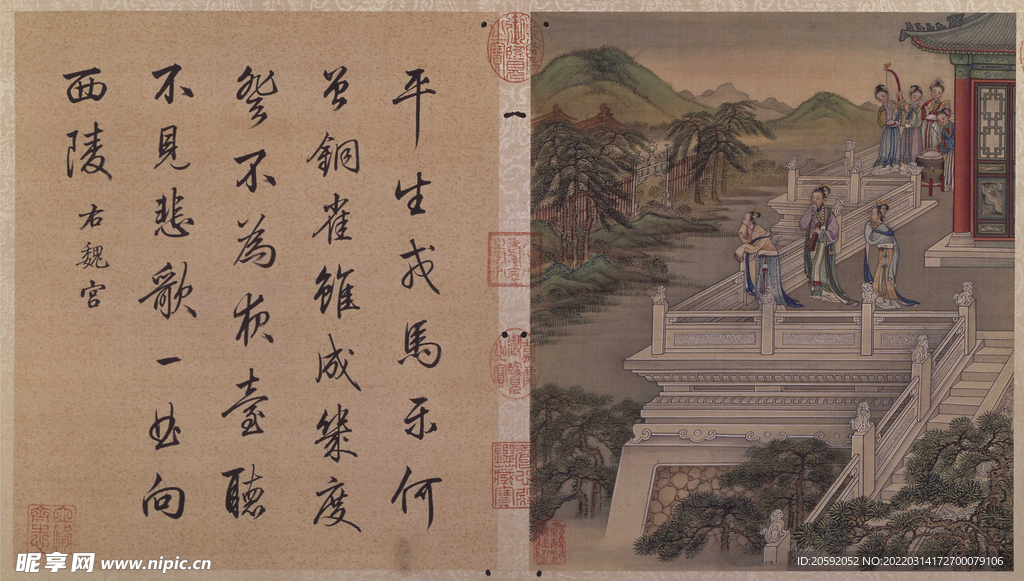 平生戎馬樂何
曾銅雀雖成幾度
登不為夜臺聽
不見悲歌一曲向
西陵
右魏宮
一
昵享网 www.nipic.cn
ID:20592052 NO:20220314172700079106